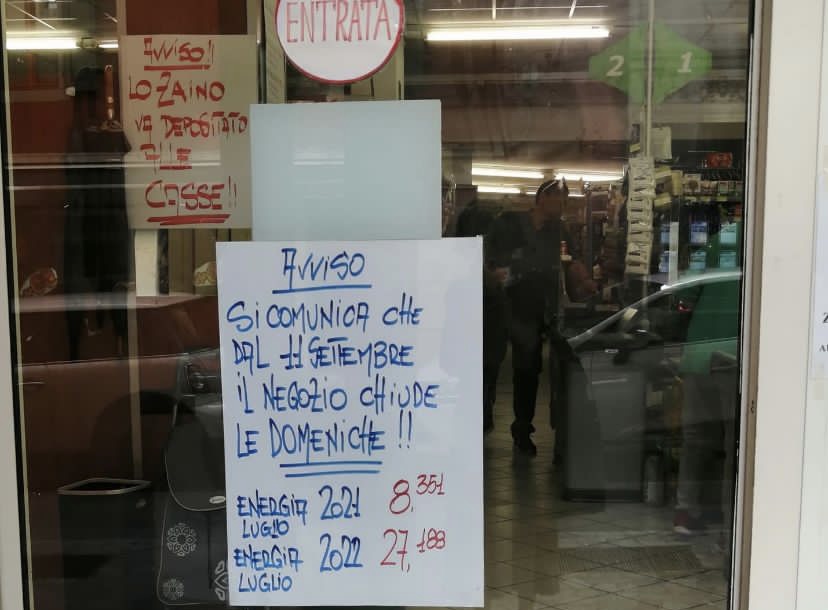 ENTRATA
2 1
AVVISO!!
LO ZAINO
VA DEPOSITATO
ALLE
CASSE!!
AVVISO
SI COMUNICA CHE
DAL 11 SETTEMBRE
IL NEGOZIO CHIUDE
LE DOMENICHE !!
ENERGIA 2021 8,351
LUGLIO
ENERGIA 2022 27,188
LUGLIO